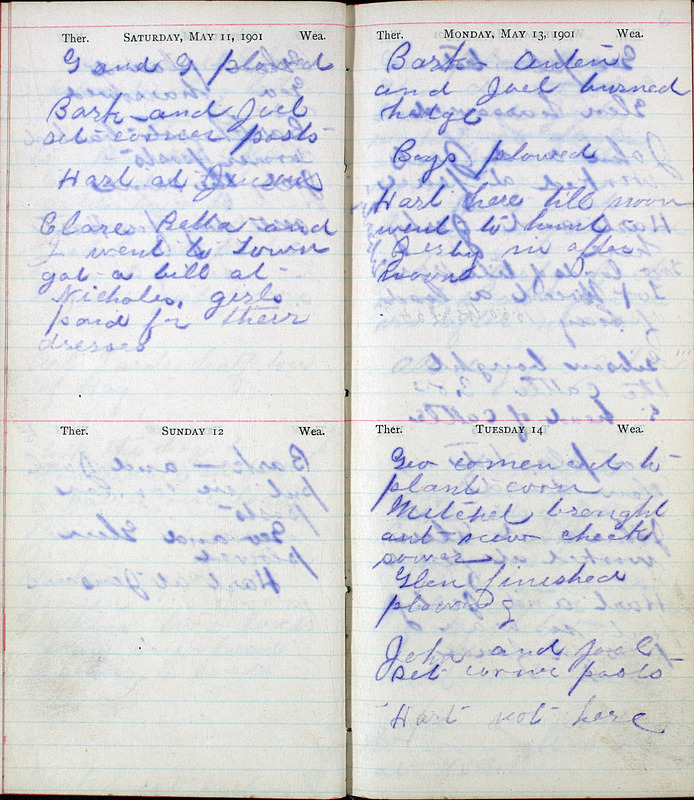 Ther. SATURDAY, MAY 11, 1901 Wea.
G and G plowed
Bark and Joel
set corner posts
Hart at
Clare Bella and
I went to Town
got a bill at
Nicholes, girls
paid for their
dresses
Ther. SUNDAY 12 Wea.
Ther. MONDAY, MAY 13, 1901 Wea.
Bark
and Joel burned
hedge
Boys plowed
Hart here till noon
went to hunt
in after
noon
Ther. TUESDAY 14 Wea.
Geo comenced to
plant corn
Mitchel brought
out new check
power
Glen finished
plowing
John and Joel
set corner posts
Hart not here